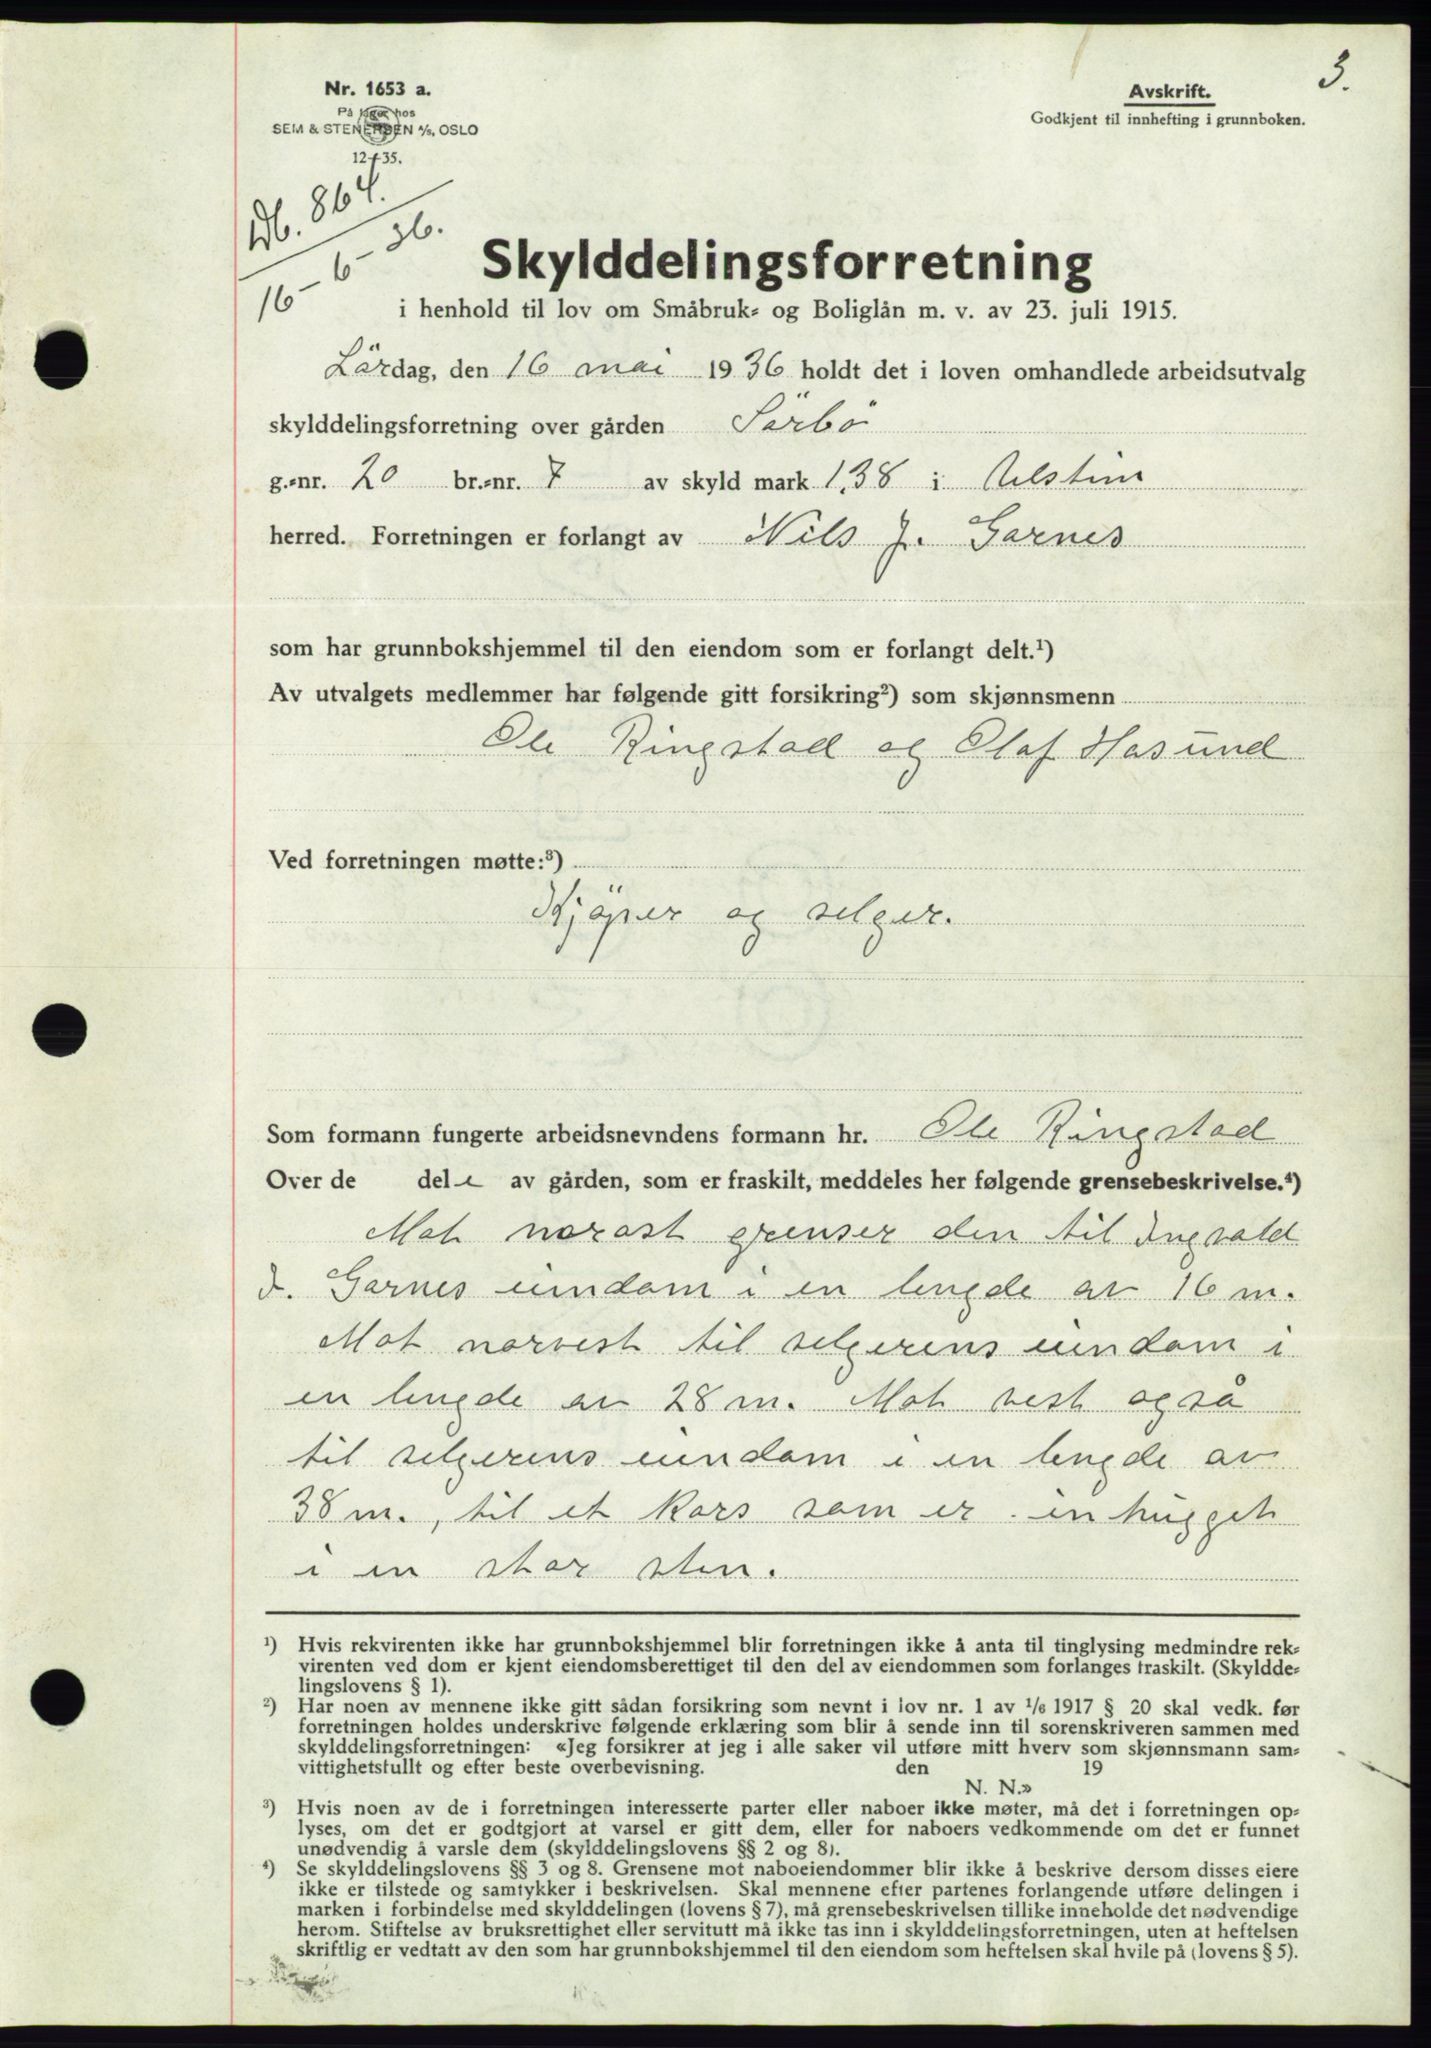 3.
Nr. 1653 a.
På lager hos
SEM & STENERSEN A/S, OSLO
12-35.
Avskrift.
Godkjent til innhefting i grunnboken.
Db. 864.
16-6-36.
Skylddelingsforretning
i henhold til lov om Småbruk- og Boliglån m. v. av 23. juli 1915.
Lördag, den 16 mai 1936 holdt det i loven omhandlede arbeidsutvalg
skylddelingsforretning over gården Sörbö
g.-nr. 20 br.-nr. 7 av skyld mark 1,38 i Ulstein
herred. Forretningen er forlangt av Nils J. Garnes
som har grunnbokshjemmel til den eiendom som er forlangt delt.¹)
Av utvalgets medlemmer har følgende gitt forsikring²) som skjønnsmenn
Ole Ringstad og Olaf Hasund
Ved forretningen møtte:³)
Kjöper og selger.
Som formann fungerte arbeidsnevndens formann hr. Ole Ringstad
Over de del e av gården, som er fraskilt, meddeles her følgende grensebeskrivelse.⁴)
Mot norost grenser den til Ingvald
J. Garnes eiendom i en lengde av 16 m.
Mot norvest til selgerens eiendom i
en lengde av 28 m. Mot vest også
til selgerens eiendom i en lengde av
38 m., til et kors som er inhugget
i en stor sten.
¹) Hvis rekvirenten ikke har grunnbokshjemmel blir forretningen ikke å anta til tinglysing medmindre rek-
virenten ved dom er kjent eiendomsberettiget til den del av eiendommen som forlanges fraskilt. (Skyldde-
lingslovens § 1).
²) Har noen av mennene ikke gitt sådan forsikring som nevnt i lov nr. 1 av ¹/₆ 1917 § 20 skal vedk. før
forretningen holdes underskrive følgende erklæring som blir å sende inn til sorenskriveren sammen med
skylddelingsforretningen: «Jeg forsikrer at jeg i alle saker vil utføre mitt hverv som skjønnsmann sam-
vittighetsfullt og efter beste overbevisning. den 19
N. N.»
³) Hvis noen av de i forretningen interesserte parter eller naboer ikke møter, må det i forretningen op-
lyses, om det er godtgjort at varsel er gitt dem, eller for naboers vedkommende om det er funnet
unødvendig å varsle dem (skylddelingslovens §§ 2 og 8).
⁴) Se skylddelingslovens §§ 3 og 8. Grensene mot naboeiendommer blir ikke å beskrive dersom disses eiere
ikke er tilstede og samtykker i beskrivelsen. Skal mennene efter partenes forlangende utføre delingen i
marken i forbindelse med skylddelingen (lovens § 7), må grensebeskrivelsen tillike inneholde det nødvendige
herom. Stiftelse av bruksrettighet eller servitutt må ikke tas inn i skylddelingsforretningen, uten at heftelsen
skriftlig er vedtatt av den som har grunnbokshjemmel til den eiendom som heftelsen skal hvile på (lovens § 5).